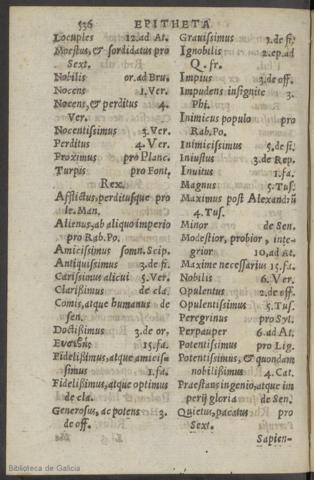 536 EPITHETA
Locuples 12.ad At.
Moestus,& sordidatus pro
Sext.
Nobilis or.ad Bru.
Nocens 1.Ver.
Nocens,& perditus 4.
Ver.
Nocentissimus 3.Ver.
Perditus 4. Ver.
Proximus pro Planc.
Turpis pro Font.
Rex.
Afflictus,perditusque pro
le.Man.
Alienus,ab aliquo imperio
pro Rab.Po.
Amicissimus somn.Scip.
Antiquissimus 3.de fi.
Carissimus alicui 5.Ver.
Clarissimus de cla.
Comis,atque humanus de
sen.
Doctissimus 3.de or,
15.fa.
Fidelissimus,atque amicis-
simus 1.fa.
Fidelissimus,atque optimus
de cla.
Generosus,ac potens 3.
de off.
Gravissimus 3.de fi.
Ignobilis 2.ep.ad
Q.fr.
Impius 3.de off.
Impudens insignite 3.
Phi.
Inimicus populo pro
Rab.Po.
Inimicissimus 5.de fi.
Iniustus 3.de Rep.
Inuitus 1.fa.
Magnus 5.Tus.
Maximus post Alexandrũ
4.Tus.
Minor de Sen.
Modestior, probior, inte-
grior 10,ad At.
Maxime necessarius 15.fa.
Nobilis 6.Ver.
Opulentus 2.de off.
Opulentissimus 5.Tus.
Peregrinus pro Syl.
Perpauper 6.ad At.
Potentissimus pro Lig.
Potentissimus,& quondam
nobilissimus 4.Cat.
Præstans ingenio,atque im
perij gloria de Sen.
Quietus,pacatus pro
Sext.
Sapien-
Biblioteca de Galicia